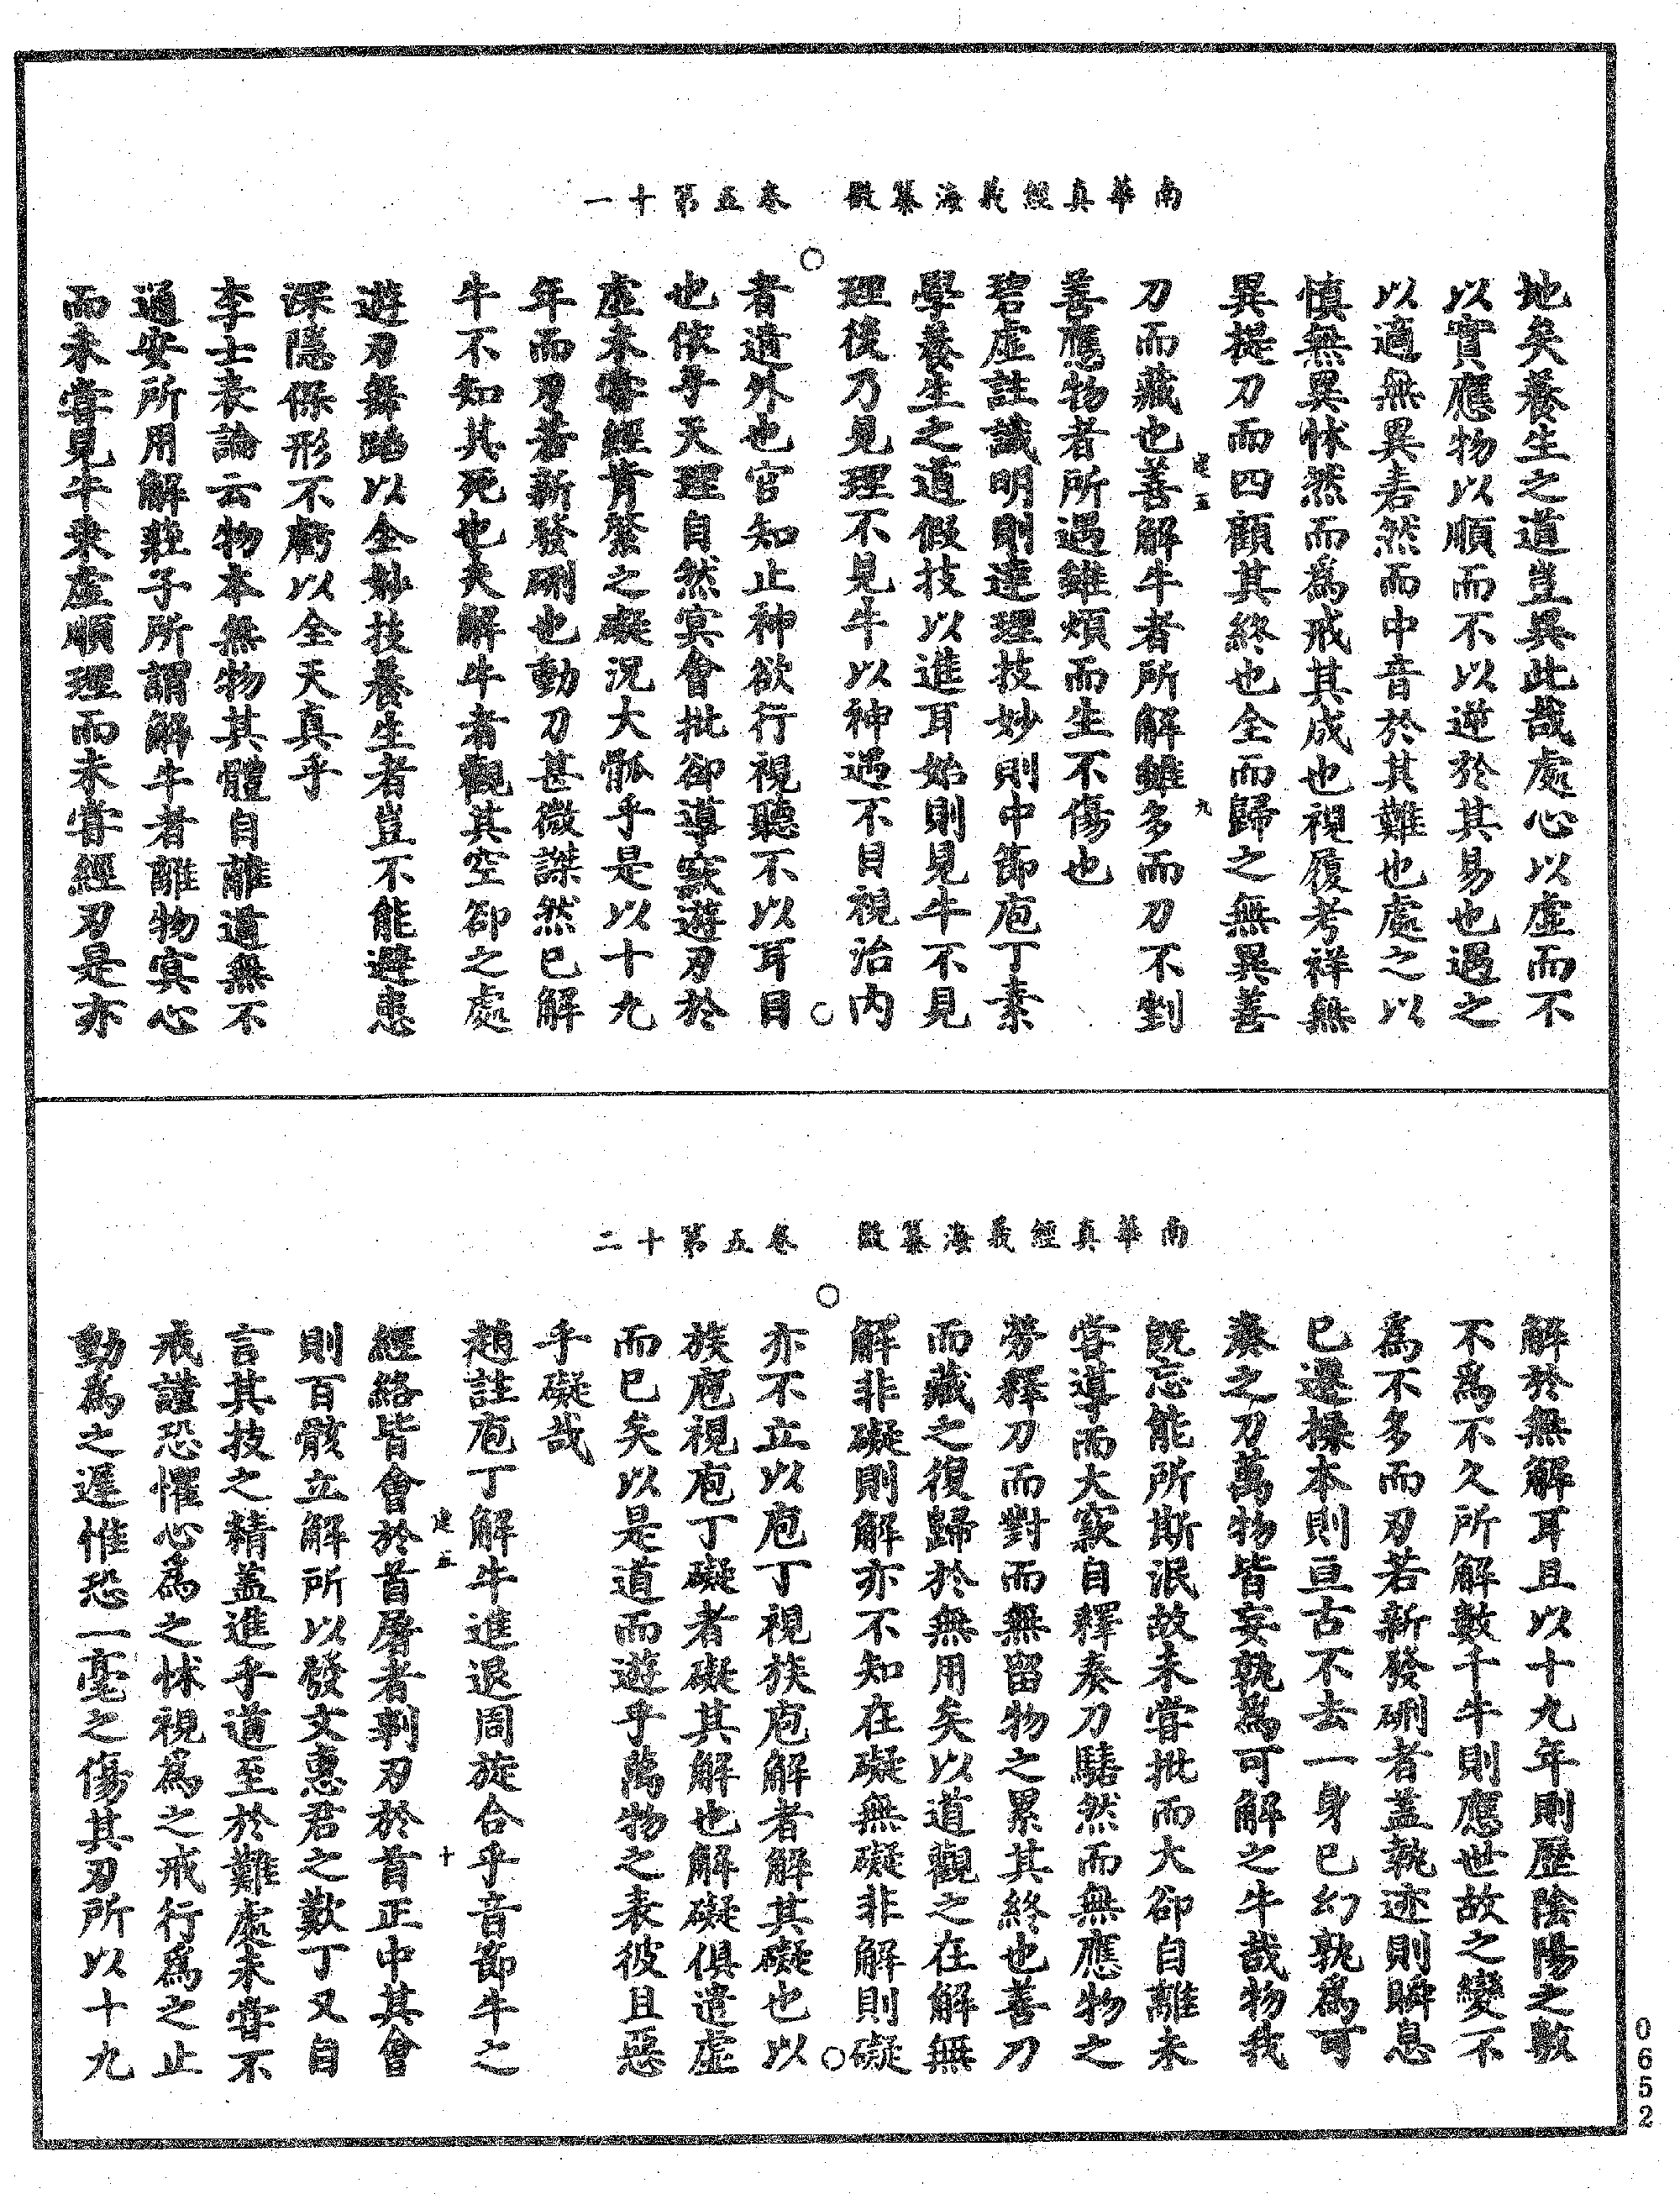 南華真經義海纂微　卷五第十一
地矣養生之道豈異此哉處心以虛而不
以實應物以順而不以逆於其易也遇之
以適無異砉然而中音於其難也處之以
慎無異怵然而為戒其成也視履考祥無
異提刀而四顧其終也全而歸之無異善
刀而藏也善解牛者所解雖多而刀不剉
建五
九
善應物者所遇雖煩而生不傷也
碧虛註識明則達理技妙則中節庖丁素
學養生之道假技以進耳始則見牛不見
理後乃見理不見牛以神遇不目視治內
者遺外也官知止神欲行視聽不以耳目
也依乎天理自然冥會批卻導窾遊刃於
虛未嘗經肯綮之礙況大軱乎是以十九
年而刃若新發硎也動刀甚微謋然已解
牛不知其死也夫解牛者觀其空卻之處
遊刃舞蹈以全妙技養生者豈不能避患
深隱保形不虧以全天真乎
李士表論云物本無物其體自離道無不
通安所用解莊子所謂解牛者離物冥心
而未嘗見牛乘虛順理而未嘗經刃是亦
南華真經義海纂微　卷五第十二
解於無解耳且以十九年則歷陰陽之數
不為不久所解數千牛則應世故之變不
為不多而刃若新發硎者蓋執迹則瞬息
已遷操本則亘古不去一身已幻孰為可
奏之刀萬物皆妄孰為可解之牛哉物我
既忘能所斯泯故未嘗批而大卻自離未
嘗導而大窾自釋奏刀騞然而無應物之
勞釋刀而對而無留物之累其終也善刀
而藏之復歸於無用矣以道觀之在解無
解非礙則解亦不知在礙無礙非解則礙
亦不立以庖丁視族庖解者解其礙也以
族庖視庖丁礙者礙其解也解礙俱遣虛
而已矣以是道而遊乎萬物之表彼且惡
乎礙哉
趙註庖丁解牛進退周旋合乎音節牛之
建五
十
經絡皆會於首屠者剚刃於首正中其會
則百骸立解所以發文惠君之歎丁又自
言其技之精蓋進乎道至於難處未嘗不
戒謹恐懼心為之怵視為之戒行為之止
動為之遲惟恐一毫之傷其刃所以十九
0652